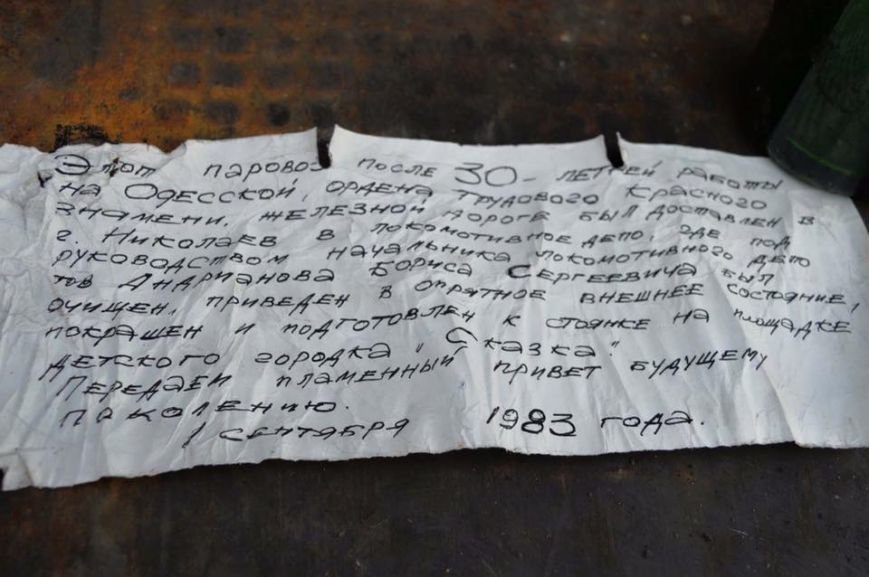 Этот паровоз после 30-летней работы
на Одесской, ордена Трудового Красного
Знамени, железной дороге был доставлен в
г. Николаев в локомотивное депо, где под
руководством начальника локомотивного депо
тов Андрианова Бориса Сергеевича был
очищен, приведен в опрятное внешнее состояние,
покрашен и подготовлен к стоянке на площадке
детского городка "Сказка".
Передаем пламенный привет будущему
поколению.
1 сентября 1983 года.